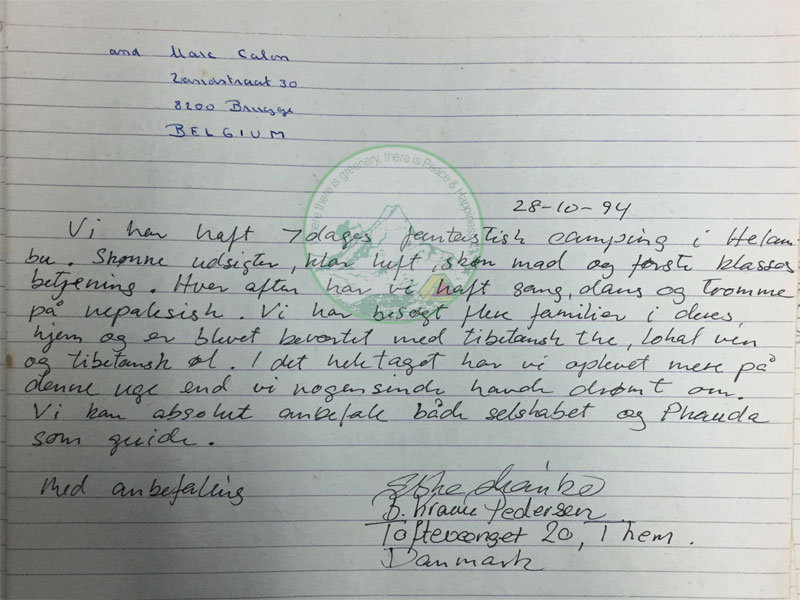 and Marc Calon
Zandstraat 30
8200 Brugge
BELGIUM
there is greenery, there is Peace & Happiness
28-10-94
Vi har haft 7 dages fantastisk camping i Helam
bu. Skønne udsigter, klar luft, skøn mad og første klasses
betjening. Hver aften har vi haft sang, dans og tromme
på nepalesisk. Vi har besøgt flere familier i deres
hjem og er blevet beværtet med tibetansk the, lokal vin
og tibetansk øl. I det hele taget har vi oplevet mere på
denne uge end vi nogensinde havde drømt om.
Vi kan absolut anbefale både selskabet og Phauda
som guide.
Med anbefaling
B. Pedersen
Toftevænget 20, Them.
Danmark